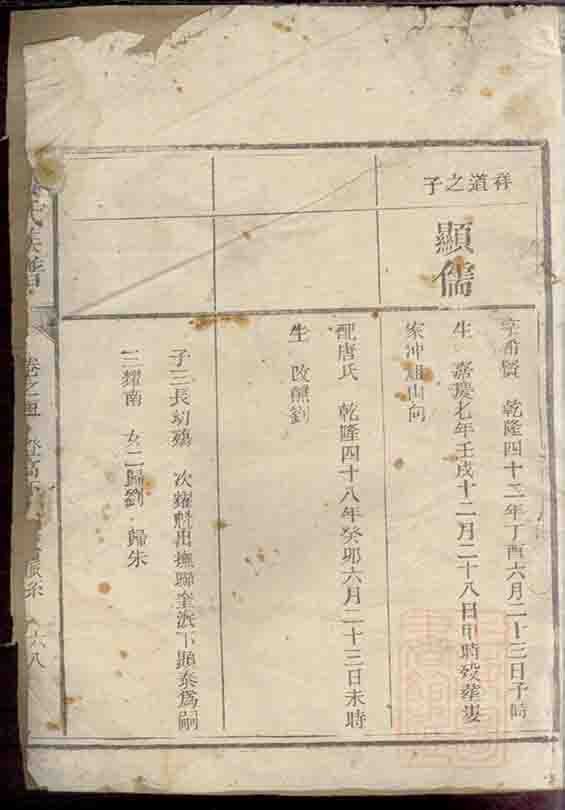 祥道之子
顯儒
字希賢 乾隆四十二年丁酉六月二十三日子時
生 嘉慶七年壬戌十二月二十八日申時歿葬
家冲 山向
配唐氏 乾隆四十八年癸卯六月二十三日未時
生 改醮劉
子三長幼殤 次耀魁出撫聯奎派下顯泰為嗣
三耀南 女二歸劉 歸朱
氏族譜
卷之 六八